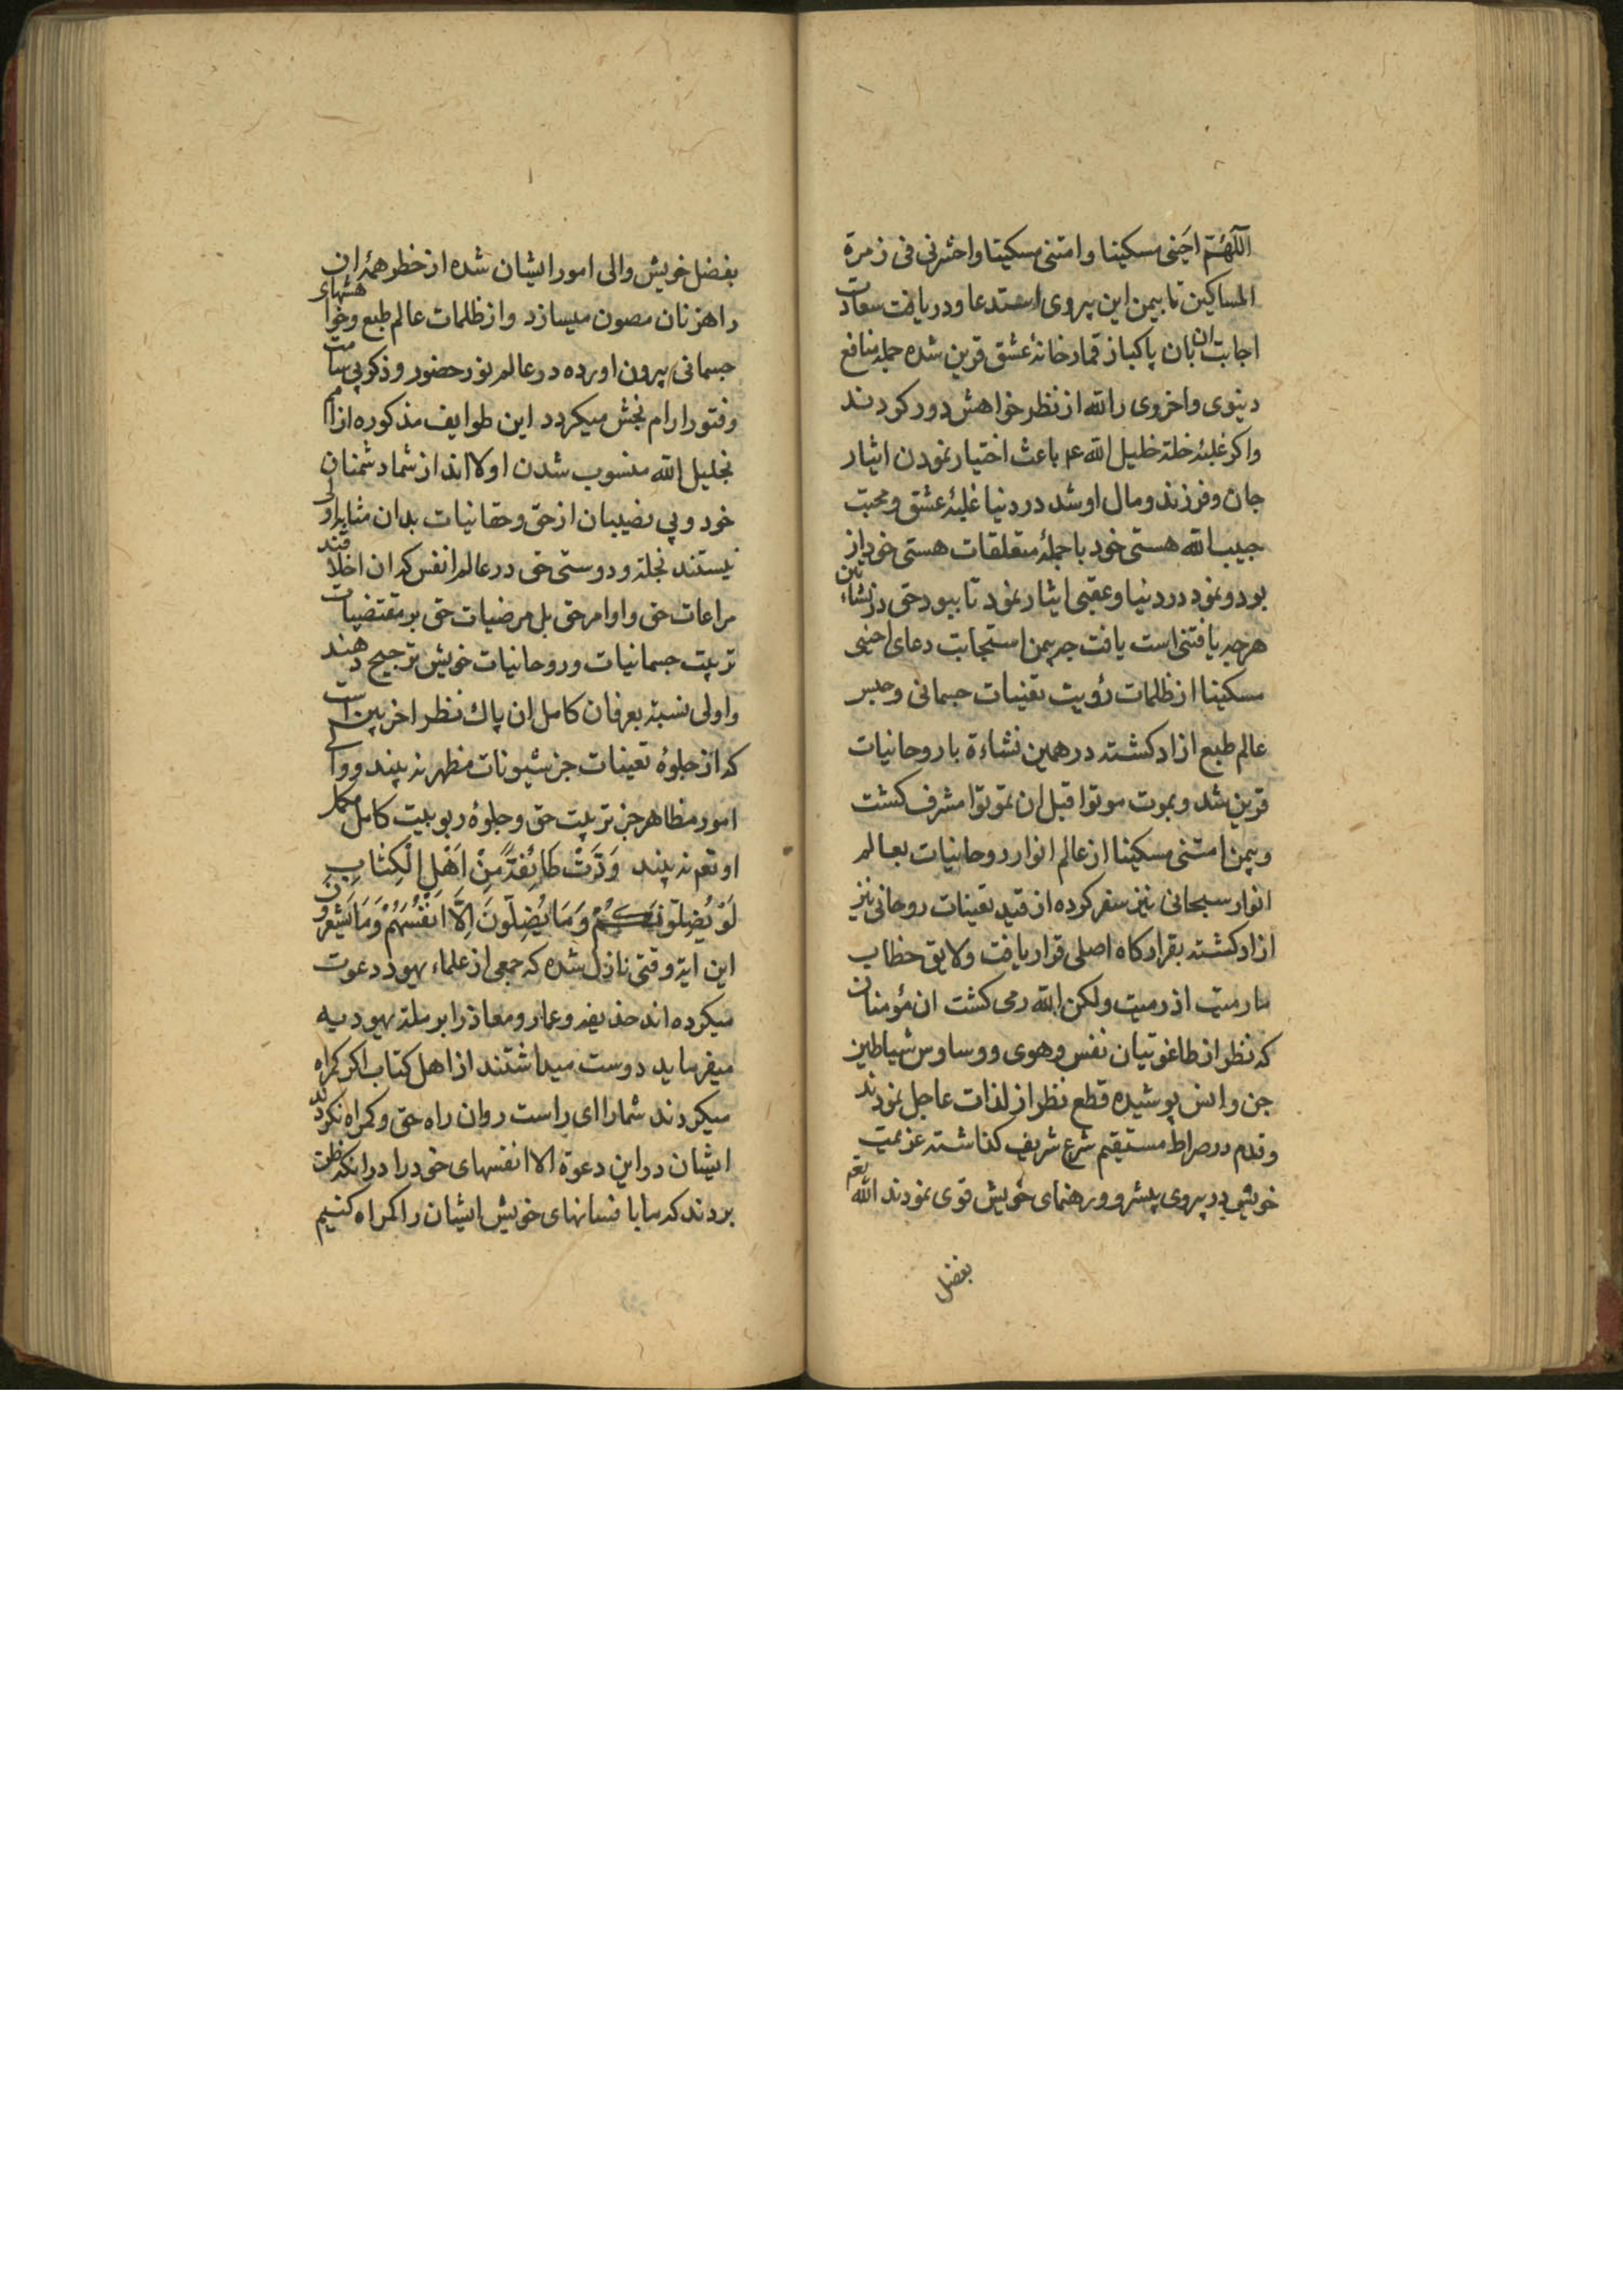 اللّهُمَّ احینی مسکینا وامتنی مسکینا واحشرنی فی زمرة
المساکین تا بیمن این پیروی استدعا ودریافت سعادت
اجابت ان بان پاکباز قمارخانهٔ عشق قرین شده جمله منافع
دینوی واخروی را لله از نظر خواهش دور کردند
واکر غلبهٔ خلة خلیل الله عم باعث اختیار نمودن ایثار
جان وفرزند ومال او شد در دنیا غلبهٔ عشق ومحبت
حبیب الله هستی خود با جملهٔ متعلقات هستی خود از
بود ونمود در دنیا وعقبی ایثار نمود تا ببود حق در نشاءتین
هرچه یافتنی است یافت چه بیمن استجابت دعای احینی
مسکینا از ظلمات رؤیت تعینات جسمانی وحبس
عالم طبع ازاد کشته در همین نشاءة با روحانیات
قرین شد وبموت موتوا قبل ان تموتوا مشرف کشت
وبیمن امتنی مسکینا از عالم انوار روحانیات بعالم
انوار سبحانی نیز سفر کرده از قید تعینات روحانی نیز
ازاد کشته بقرارکاه اصلی قرار یافت ولایق خطاب
مارمیت اذ رمیت ولکن الله رمی کشت ان مؤمنان
که نظر از طاغوتیان نفس وهوی ووساوس شیاطین
جن وانس پوشیده قطع نظر از لذات عاجل نمودند
وقدم در صراط مستقیم شرع شریف کذاشته عزیمت
خویش در پیروی پیشرو ورهنمای خویش قوی نمودند الله تعم
بفضل
بفضل خویش والی امور ایشان شده از خطر همهٔ ان
راهزنان مصون میسازد واز ظلمات عالم طبع وخواهشهای
جسمانی بیرون اورده در عالم نور حضور وذکر بی سامت
وفتور ارام بخش میکردد این طوایف مذکوره از امم
بخلیل الله منسوب شدن اولااند از شما دشمنان
خود وبی نصیبان از حق وحقانیات بدان مثابه اولی
نیستند بخلة ودوستی حق در عالم انفس که ان اخلاقند
مراعات حق واوامر حق بل مرضیات حق بر مقتضیات
تربیت جسمانیات وروحانیات خویش ترجیح دهند
واولی نسبة بعرفان کامل ان پاك نظر اخر بین است
که از جلوهٔ تعینات جز شیونات مظهر نه بیند ووالی
امور مظاهر جز تربیت حق وجلوهٔ ربوبیت کامل مکمل
او تعم نه بیند وَدَّتْ طَائِفَةٌ مِنْ اَهْلِ الْكِتَابِ
لَوْ يُضِلّونَكُمْ وَمَا يُضِلّونَ اِلَّا اَنْفُسَهُمْ وَمَا يَشْعُرُونَ
این ایة وقتی نازل شده که جمعی از علماء یهود دعوت
میکرده اند حذیفه وعمار ومعاذ را بر ملة یهودیه
میفرماید دوست میداشتند از اهل کتاب اکر کمراه
میکردند شما را ای راست روان راه حق وکمراه نکردند
ایشان در این دعوة الا انفسهای خود را در انکه ظن
بردند که ما با فسانهای خویش ایشان را کمراه کنیم